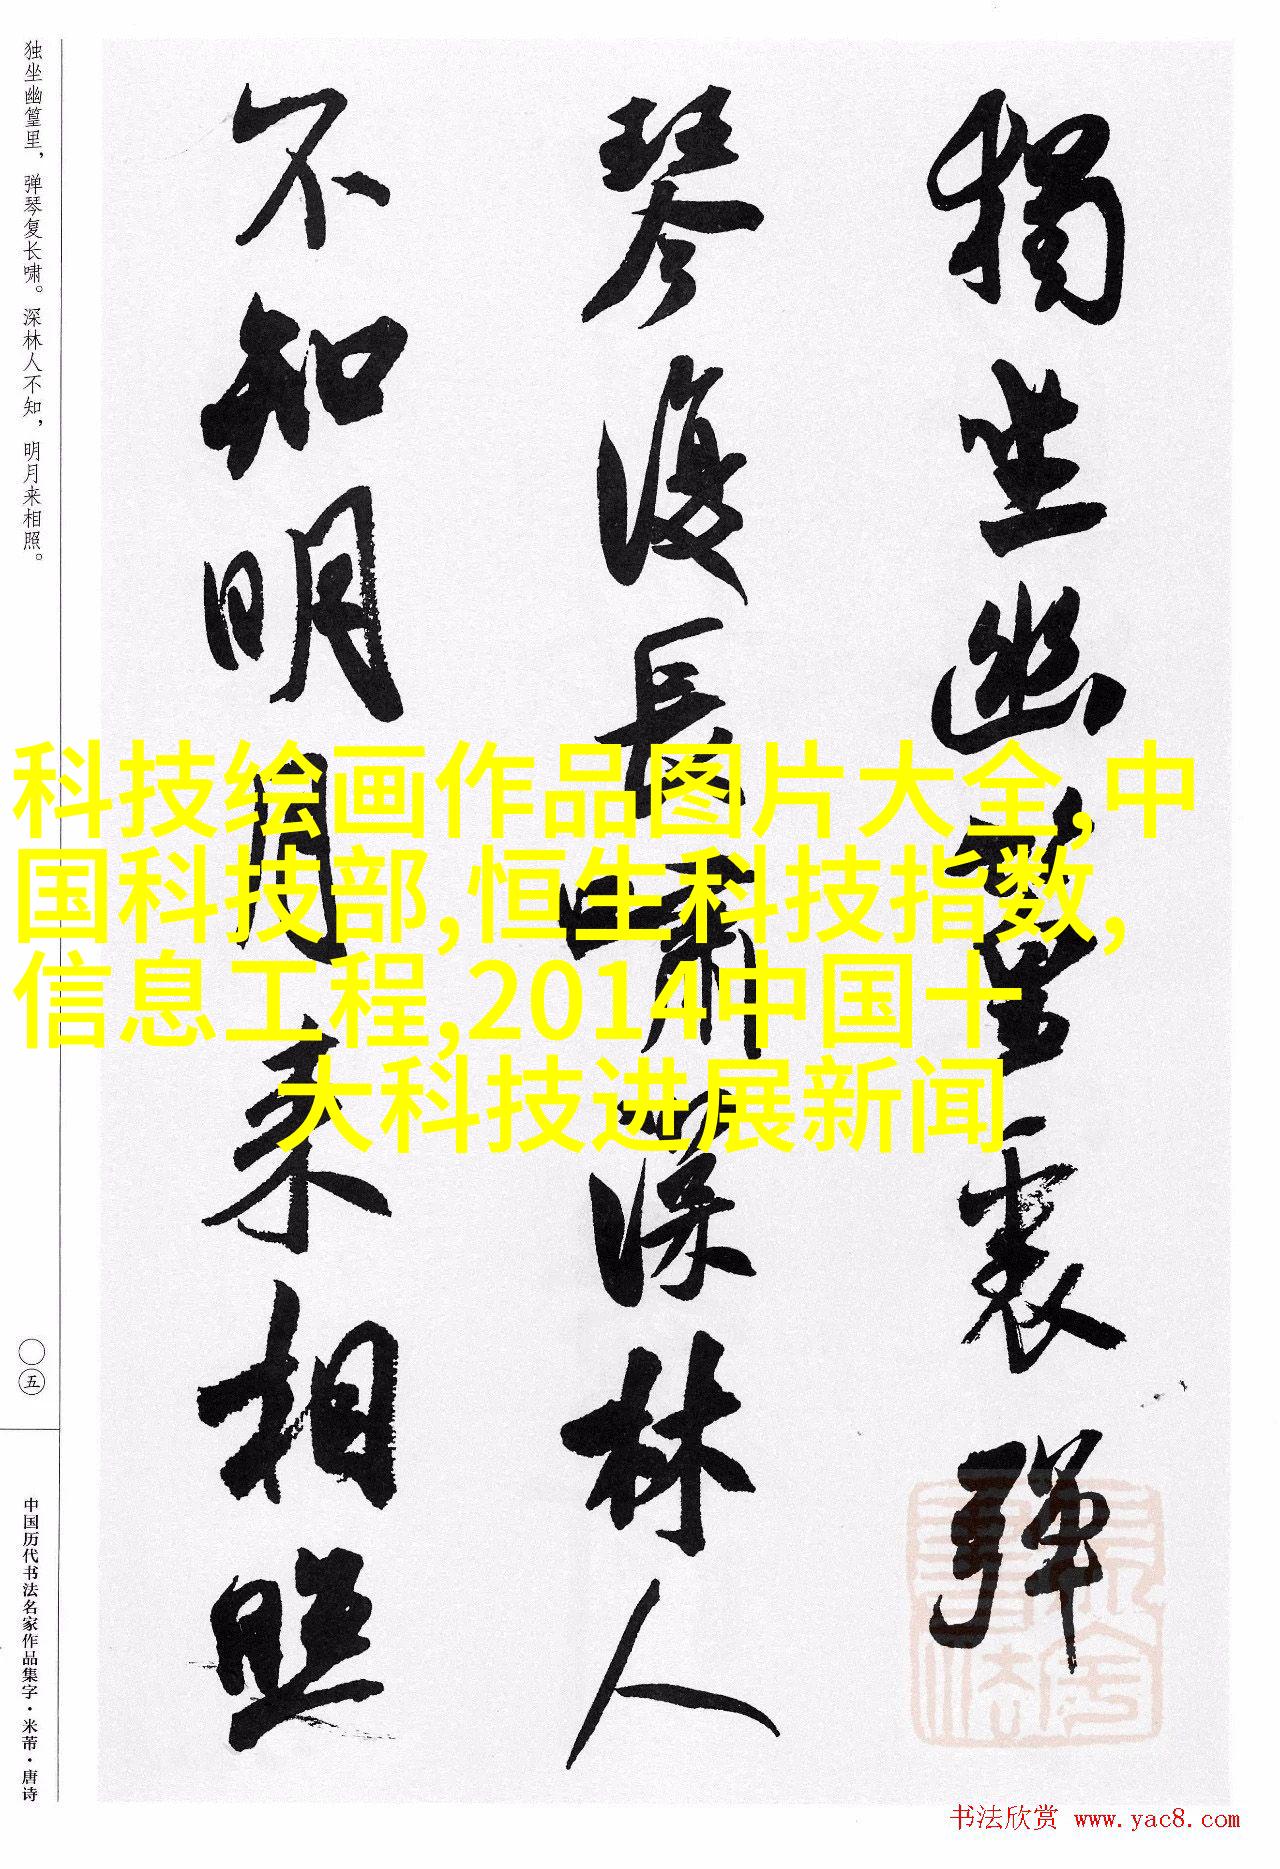 獨坐幽篁裏彈
琴復長嘯深林人
不知明月来相照
独坐幽篁里，弹琴复长啸。深林人不知，明月来相照。
〇五
中国历代书法名家作品集字·米芾·唐诗
科技绘画作品图片大全,中
国科技部,恒生科技指数,
信息工程,2014中国十
大科技进展新闻
书法欣赏 www.yac8.com